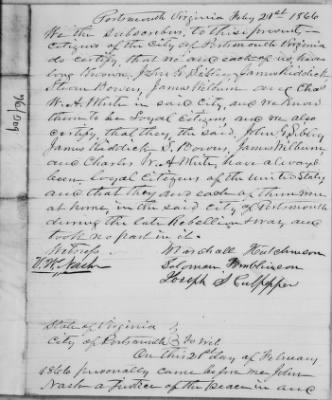 Portsmouth Virginia Feby 21st 1866
We the Subscribers to this present
Citizens of the City of Portsmouth Virginia
do certify, that we and each of us, have
long known, John G. Sibley, James Riddick
Bower, James Wilburn and Chas
W. A. White in said City, and we know
them to be Loyal Citizens, and we also
certify, that they the said, John G. Sibley
James Riddick S. Bower, James Wilburn
and Charles W. A White, have always
been Loyal Citizens of the United States
and that they and each of them was
at home, in the said City of Portsmouth
during the late Rebellion & war, and
took no part in it.
Witness
Marshall Hutchinson
Nash
Solomon Tomblinson
Joseph S Culpepper
State of Virginia
City of Portsmouth To Wit
On this 21st day of February
1866 personally came before me John
Nash a Justice of the peace in and